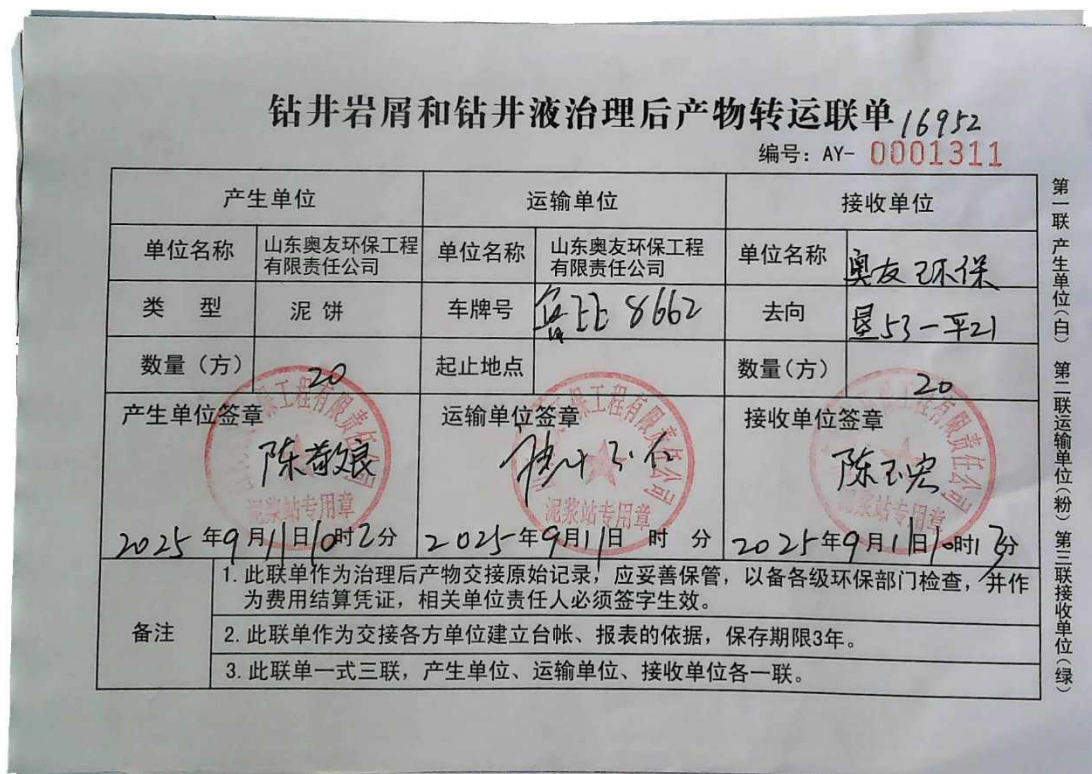 钻井岩屑和钻井液治理后产物转运联单 16952
编号：AY- 0001311
产生单位 运输单位 接收单位
单位名称 山东奥友环保工程有限责任公司 单位名称 山东奥友环保工程有限责任公司 单位名称 奥友环保
类 型 泥饼 车牌号 8662 去向 垦53-平21
数量（方） 20 起止地点 数量（方） 20
产生单位签章 运输单位签章 接收单位签章
陈敬良 陈玉宏
泥浆站专用章 泥浆站专用章 泥浆站专用章
2025年9月11日10时2分 2025年9月11日 时 分 2025年9月11日10时 分
备注
1. 此联单作为治理后产物交接原始记录，应妥善保管，以备各级环保部门检查，并作
为费用结算凭证，相关单位责任人必须签字生效。
2. 此联单作为交接各方单位建立台帐、报表的依据，保存期限3年。
3. 此联单一式三联，产生单位、运输单位、接收单位各一联。
第一联 产生单位（白） 第二联运输单位（粉） 第三联接收单位（绿）